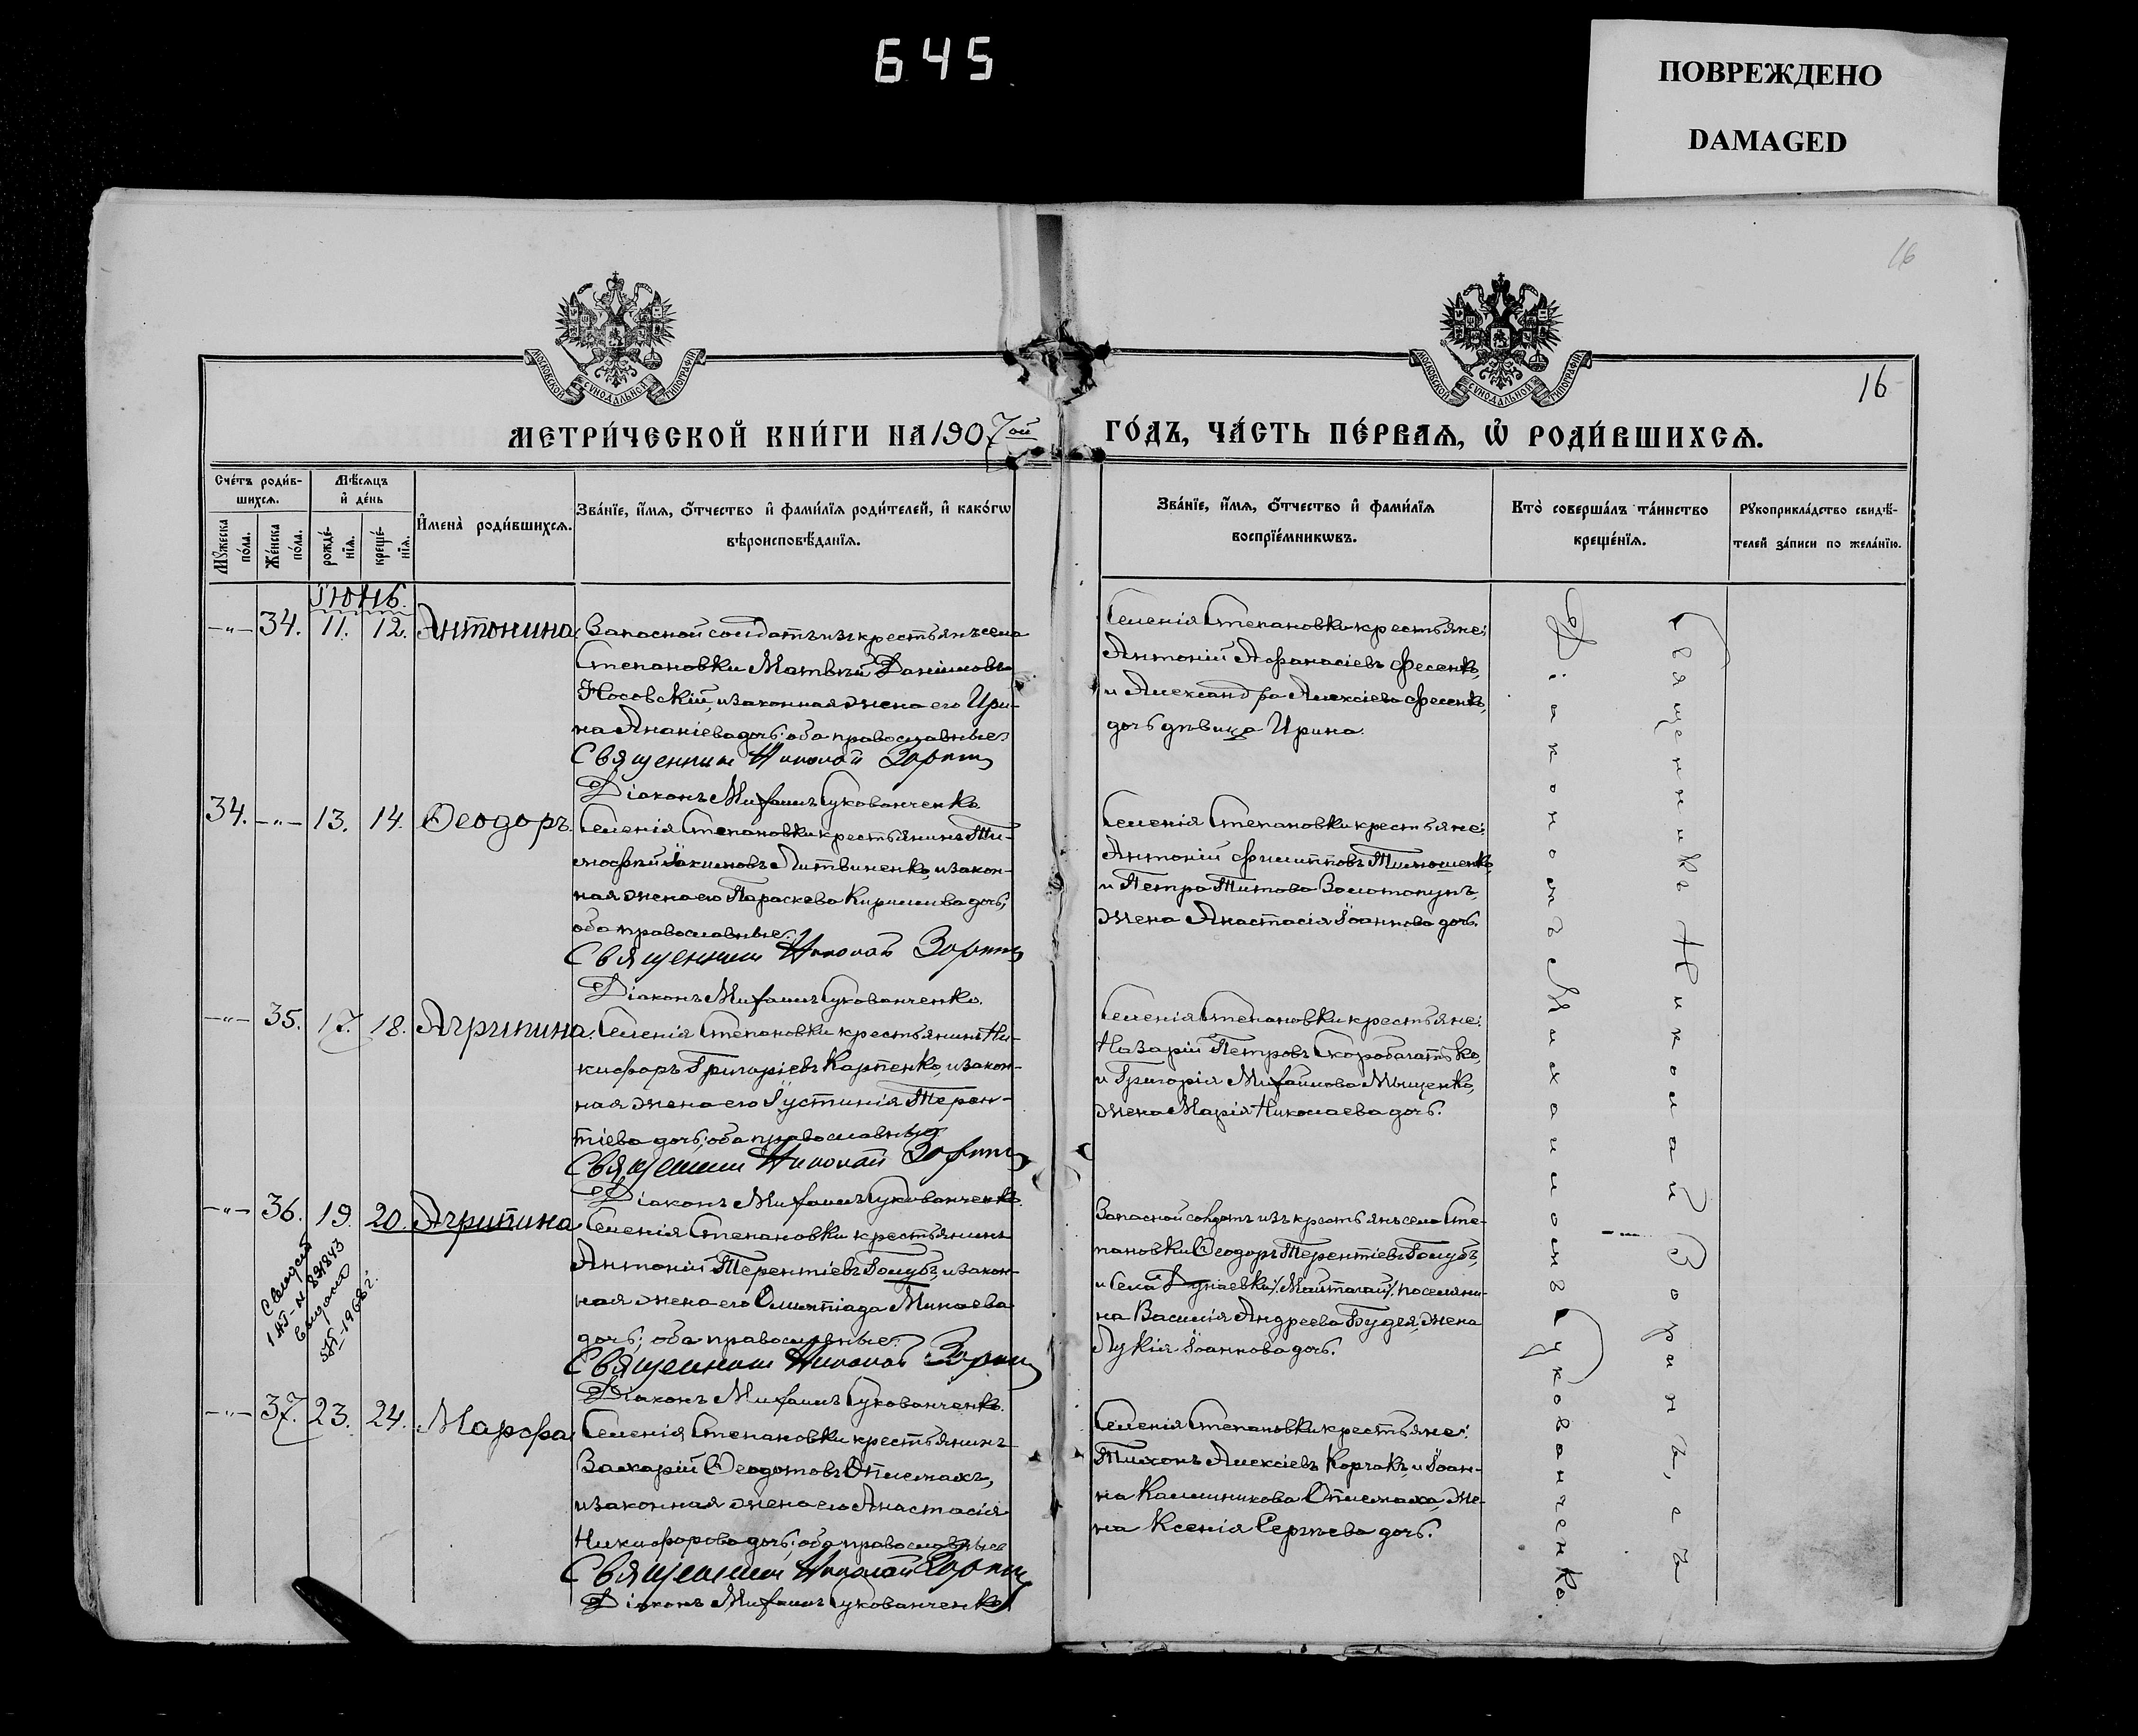 645
ПОВРЕЖДЕНО
DAMAGED
16
16
МОСКОВСКОЙ СѴНОДАЛЬНОЙ ТИПОГРАФІИ
МОСКОВСКОЙ СѴНОДАЛЬНОЙ ТИПОГРАФІИ
МЕТРИ́ЧЕСКОЙ КНИ́ГИ НА 1907ой
ГО́ДЪ, ЧА́СТЬ ПЕ́РВАѦ, Ѡ РОДИ́ВШИХСѦ.
Сче́тъ роди́в-
шихсѧ.
Мѣ́сѧцъ
и҆ де́нь
Мꙋ́жеска
по́ла.
Же́нска
по́ла.
рожде́-
нїѧ.
креще́-
нїѧ.
И҆мена̀ роди́вшихсѧ.
Зва́нїе, и҆́мѧ, ѻ҆́тчество и҆ фами́лїѧ роди́телей, и҆ како́гѡ
вѣроисповѣ́данїѧ.
Зва́нїе, и҆́мѧ, ѻ҆́тчество и҆ фами́лїѧ
воспрїе́мникѡвъ.
Кто̀ соверша́лъ та́инство
креще́нїѧ.
Рꙋкоприкла́дство свидѣ́-
телей за́писи по жела́нїю.
Іюнь.
-"- 34. 11. 12. Антонина.
Запасной солдатъ изъ крестьянъ села
Степановки Матвѣй Даніиловъ
Носовскій, и законная жена его Ири-
на Ананіева дочь: оба православные
Священник Николай Зорин
Діаконъ Михаилъ Сукованченко
Селенія Степановки крестьяне:
Антоній Афанасіевъ Фесенко,
и Александра Алексіева Фесенко,
дочь дѣвица Ирина.
34. -"- 13. 14. Ѳеодоръ.
Селенія Степановки крестьянинъ Ти-
мофей Іакимовъ Литвиненко, и закон-
ная жена его Параскева Кириллова дочь,
оба православные.
Священник Николай Зорин
Діаконъ Михаилъ Сукованченко.
Селенія Степановки крестьяне:
Антоній Филипповъ Тимошенко,
и Петра Титова Золотопупъ,
жена Анастасія Іоаннова дочь.
-"- 35. 17. 18. Агрипина.
Селенія Степановки крестьянинъ Ни-
кифоръ Григоріевъ Карпенко, и закон-
ная жена его Іустинія Терен-
тіева дочь; оба православныя
Священник Николай Зорин
Діаконъ Михаилъ Сукованченко.
Селенія Степановки крестьяне:
Назарій Петровъ Скоробагатько,
и Григорія Михаилова Мищенко,
жена Марія Николаева дочь.
-"- 36. 19. 20. Агрипина
Селенія Степановки крестьянинъ
Антоній Терентіевъ Голубъ, и закон-
ная жена его Олимпіада Минаева
дочь; оба православные.
Священник Николай Зорин
Діаконъ Михаилъ Сукованченко.
Запасной солдатъ изъ крестьянъ села Сте-
пановки Ѳеодоръ Терентіевъ Голубъ,
и села Дунаевки /Майтагай/ поселяни-
на Василія Андреева Будея, жена
Лукія Іоаннова дочь.
-"- 37. 23. 24. Марѳа
Селенія Степановки крестьянинъ
Захарій Ѳеодотовъ Оплемахъ,
и законная жена его Анастасія
Никифорова дочь; оба православные
Священник Николай Зорин
Діаконъ Михаилъ Сукованченко
Селенія Степановки крестьяне:
Тихонъ Алексіевъ Корчакъ, и Іоан-
на Калинникова Оплемаха, же-
на Ксенія Сергѣева дочь.
Священникъ Николай Зоринъ, съ
Діакономъ Михаиломъ Сукованченко.